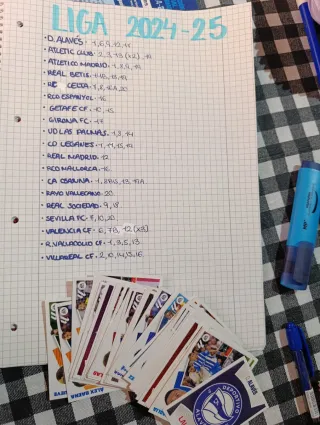 LIGA 2024-25
• D. ALAVÉS - 1, 6, 9, 12, 14
• ATLETIC CLUB - 2, 3, 13 (x2), 19
• ATLETICO MADRID - 1, 8, 9, 19
• REAL BETIS -
• CELTA - 1, 8, 16A, 20
• RCD ESPANYOL - 16
• GETAFE CF - 10, 15
• GIRONA FC - 17
• UD LAS PALMAS - 1, 3, 14
• CD LEGANÉS - 1, 14, 15, 19
• REAL MADRID - 12
• RCD MALLORCA - 16
• CA OSASUNA - 1, 8BIS, 13, 19A
• RAYO VALLECANO - 20
• REAL SOCIEDAD - 9, 18
• SEVILLA FC - 7, 10, 20
• VALENCIA CF - 6, 7B, 12 (x3)
• R. VALLADOLID CF - 1, 3, 5, 13
• VILLAREAL CF - 2, 10, 14, 15, 16
ALEX BAENA
ALAVÉS
DEPORTIVO